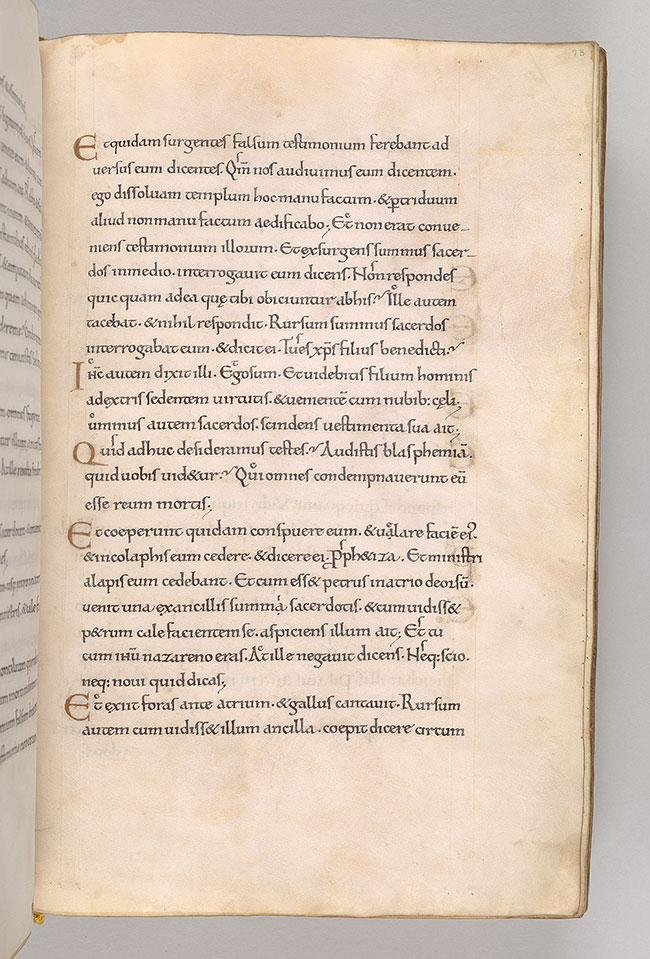 73
Et quidam surgentes falsum testimonium ferebant ad
versus eum dicentes. Qm̄ nos audivimus eum dicentem.
ego dissolvam templum hoc manu factum. & p̱ triduum
aliud non manu factum aedificabo; Et non erat conve-
niens testimonium illorum. Et exsurgens summus sacer-
dos in medio. interrogavit eum dicens. Non respondes
quic quam ad ea quę tibi obiciuntur ab his? Ille autem
tacebat. & nihil respondit. Rursum summus sacerdos
interrogabat eum. & dicit ei. Tu es xp̄s filius benedicti?
Ihc̄ autem dixit illi. Ego sum. Et videbitis filium hominis
a dextris sedentem virtutis. & venientē cum nubib: cęli;
Summus autem sacerdos. scindens vestimenta sua ait;
Quid adhuc desideramus testes? Audistis blasphemiā.
quid vobis vid&ur? Qui omnes condempnaverunt eū
esse reum mortis;
Et coeperunt quidam conspuere eum. & velare faciē ei᾽.
& in colaphis eum cedere. & dicere ei. Proph&iza. Et ministri
alapis eum cedebant. Et cum ess& petrus in atrio deorsū.
venit una ex ancillis summi sacerdotis. & cum vidiss&
p&rum calefacientem se. aspiciens illum ait; Et tu
cum ihū nazareno eras. At ille negavit dicens. Neq: scio.
neq: novi quid dicas;
Et exiit foras ante atrium. & gallus cantavit. Rursum
autem cum vidiss& illum ancilla. coepit dicere circum